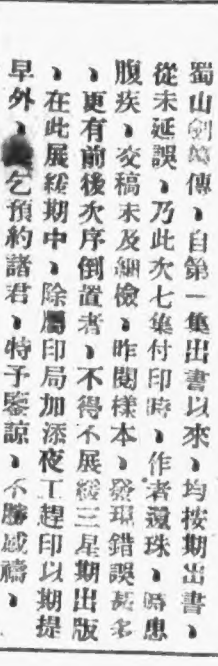 蜀山劍俠傳、自第一集出書以來、均按期出書、
從未延誤、乃此次七集付印時、作者還珠、時患
腹疾、交稿未及細檢、昨閱樣本、發現錯誤甚多
、更有前後次序倒置者、不得不展緩三星期出版
、在此展緩期中、除屬印局加添夜工趕印以期提
早外、乞預約諸君、特予鑒諒、不勝感禱、